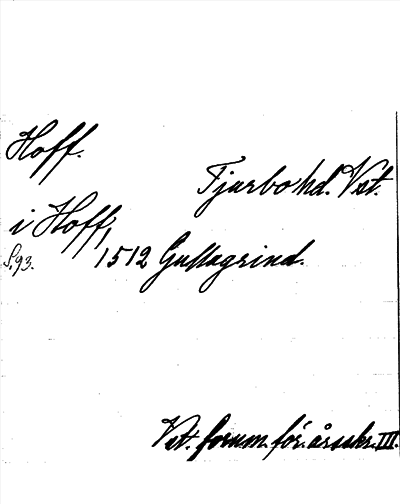 Hoff.
Tjurbo hd. Vet.
i Hoff,
S. 93.
1512 Gullagrind.
Vet. forum. för. årsskr. III.